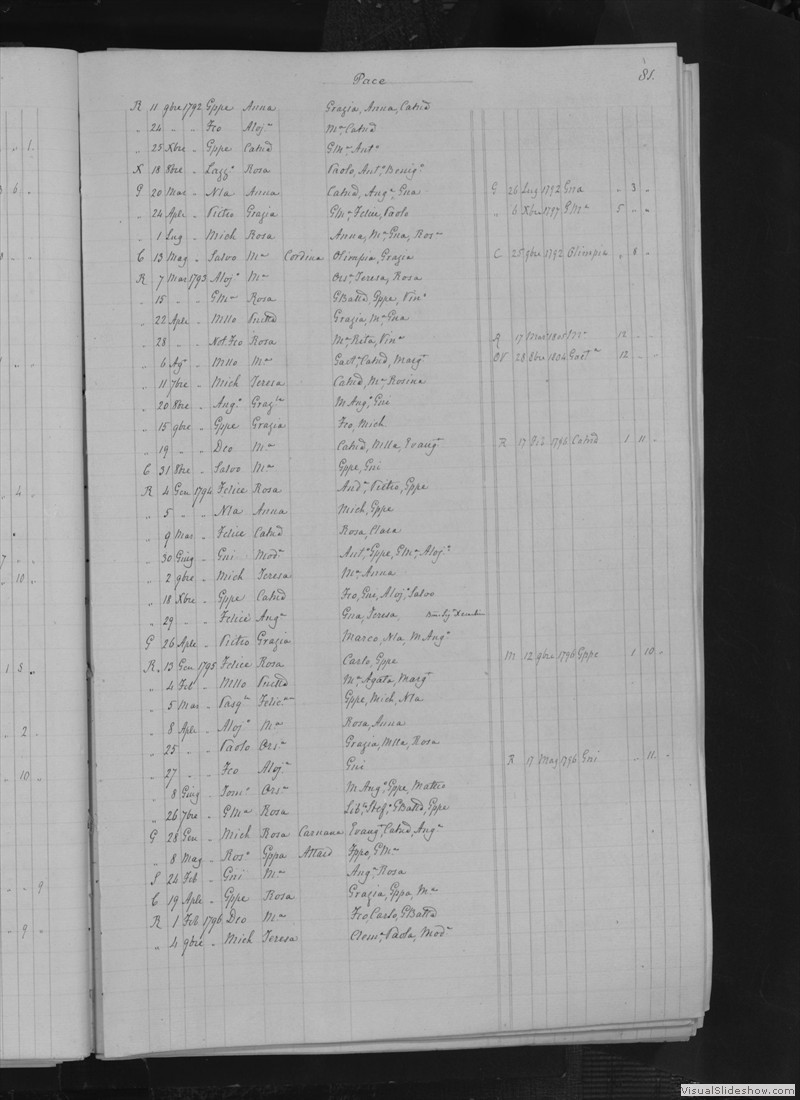 81.
Pace
R 11 9bre 1792 Gppe Anna Grazia, Anna, Catnd
" 24 " - Fco Aloja Ma, Catnd
" 25 Xbre - Gppe Catnd GMa, Anto
X 18 8bre - Lazzo Rosa Paolo, Anto, Benigo
G 20 Mar - Nla Anna Catnd, Anga, Gna G 26 Lug 1792 Gna " 3 "
" 24 Aple - Pietro Grazia GMa, Felice, Paolo " 6 Xbre 1797 GMa 5 " "
" 1 Lug - Mich Rosa Anna, Ma, Gna, Rosa
C 13 Mag - Salvo Ma Cordina Olimpia, Grazia C 25 9bre 1792 Olimpia " 8 "
R 7 Mar 1793 Alojo Ma Orsa, Teresa, Rosa
" 15 " - GMa Rosa GBatta, Gppe, Vino
" 22 Aple - Mllo Grazia, Ma, Gna
" 28 " - Not. Fco Rosa Ma, Rita, Vina R 17 Ma 12 " "
" 6 Ago - Mllo Ma Gaeta, Catnd, Marga 28 8bre 1804 Gaeta 12 " "
" 11 7bre - Mich Teresa Catnd, Ma, Rosina
" 20 8bre - Ango Grazla M Ango, Gni
" 15 9bre - Gppe Grazia Fco, Mich
" 19 " - Deo Ma Catnd, Mlla, Evanga R 17 Feb 1794 Catnd 1 11 "
C 31 8bre - Salvo Ma Gppe, Gni
R 4 Gen 1794 Felice Rosa Anda, Pietro, Gppe
" 5 " " Nla Anna Mich, Gppe
" 9 Mar - Felice Catnd Rosa, Clara
" 30 Giug - Gni Moda Anto, Gppe, GMa, Alojo
" 2 9bre - Mich Teresa Ma, Anna
" 18 Xbre - Gppe Catnd Fco, Gni, Alojo, Salvo
" 29 " - Felice Anga Gna, Teresa,
G 26 Aple - Pietro Grazia Marco, Nla, M Ango
R 13 Gen 1795 Felice Rosa Carlo, Gppe M 12 9bre 1796 Gppe 1 10 "
" 4 Feb - Mllo Ma, Agata, Marga
" 5 Mar - Pasqe Felicna Gppe, Mich, Nla
" 8 Aple - Alojo Ma Rosa, Anna
" 25 " " Paolo Orsa Grazia, Mlla, Rosa
" 27 " - Fco Aloja Gni R 17 Mag 1796 Gni " 11 "
" 8 Giug - Tomo Orsa M Ango, Gppe, Matteo
" 26 7bre - GMa Rosa Liba, Stefo, GBatta, Gppe
G 28 Gen - Mich Rosa Caruana Evanga, Catnd, Anga
" 8 Mag - Roso Gppa Attard Fppo, GMa
S 24 Feb - Gni Ma Anga, Rosa
C 19 Aple - Gppe Rosa Grazia, Gppa, Ma
R 1 Feb 1796 Deo Ma Fco, Carlo, GBatta
" 4 9bre - Mich Teresa Clema, Paola, Moda
VisualSlideshow.com